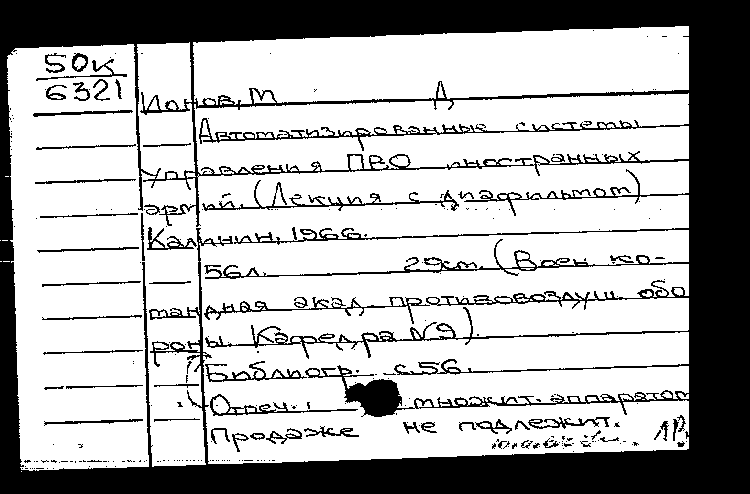 50к
6321
Ионов, М Д
Автоматизированные системы
управления ПВО иностранных
армий. (Лекция с диафильмом)
Калинин, 1966.
56л. 29см. (Воен ко-
мандная акад. противовоздуш. обо
роны. Кафедра №9).
Библиогр. с.56.
Отпеч. множит. аппаратом
Продаже не подлежит.
1В